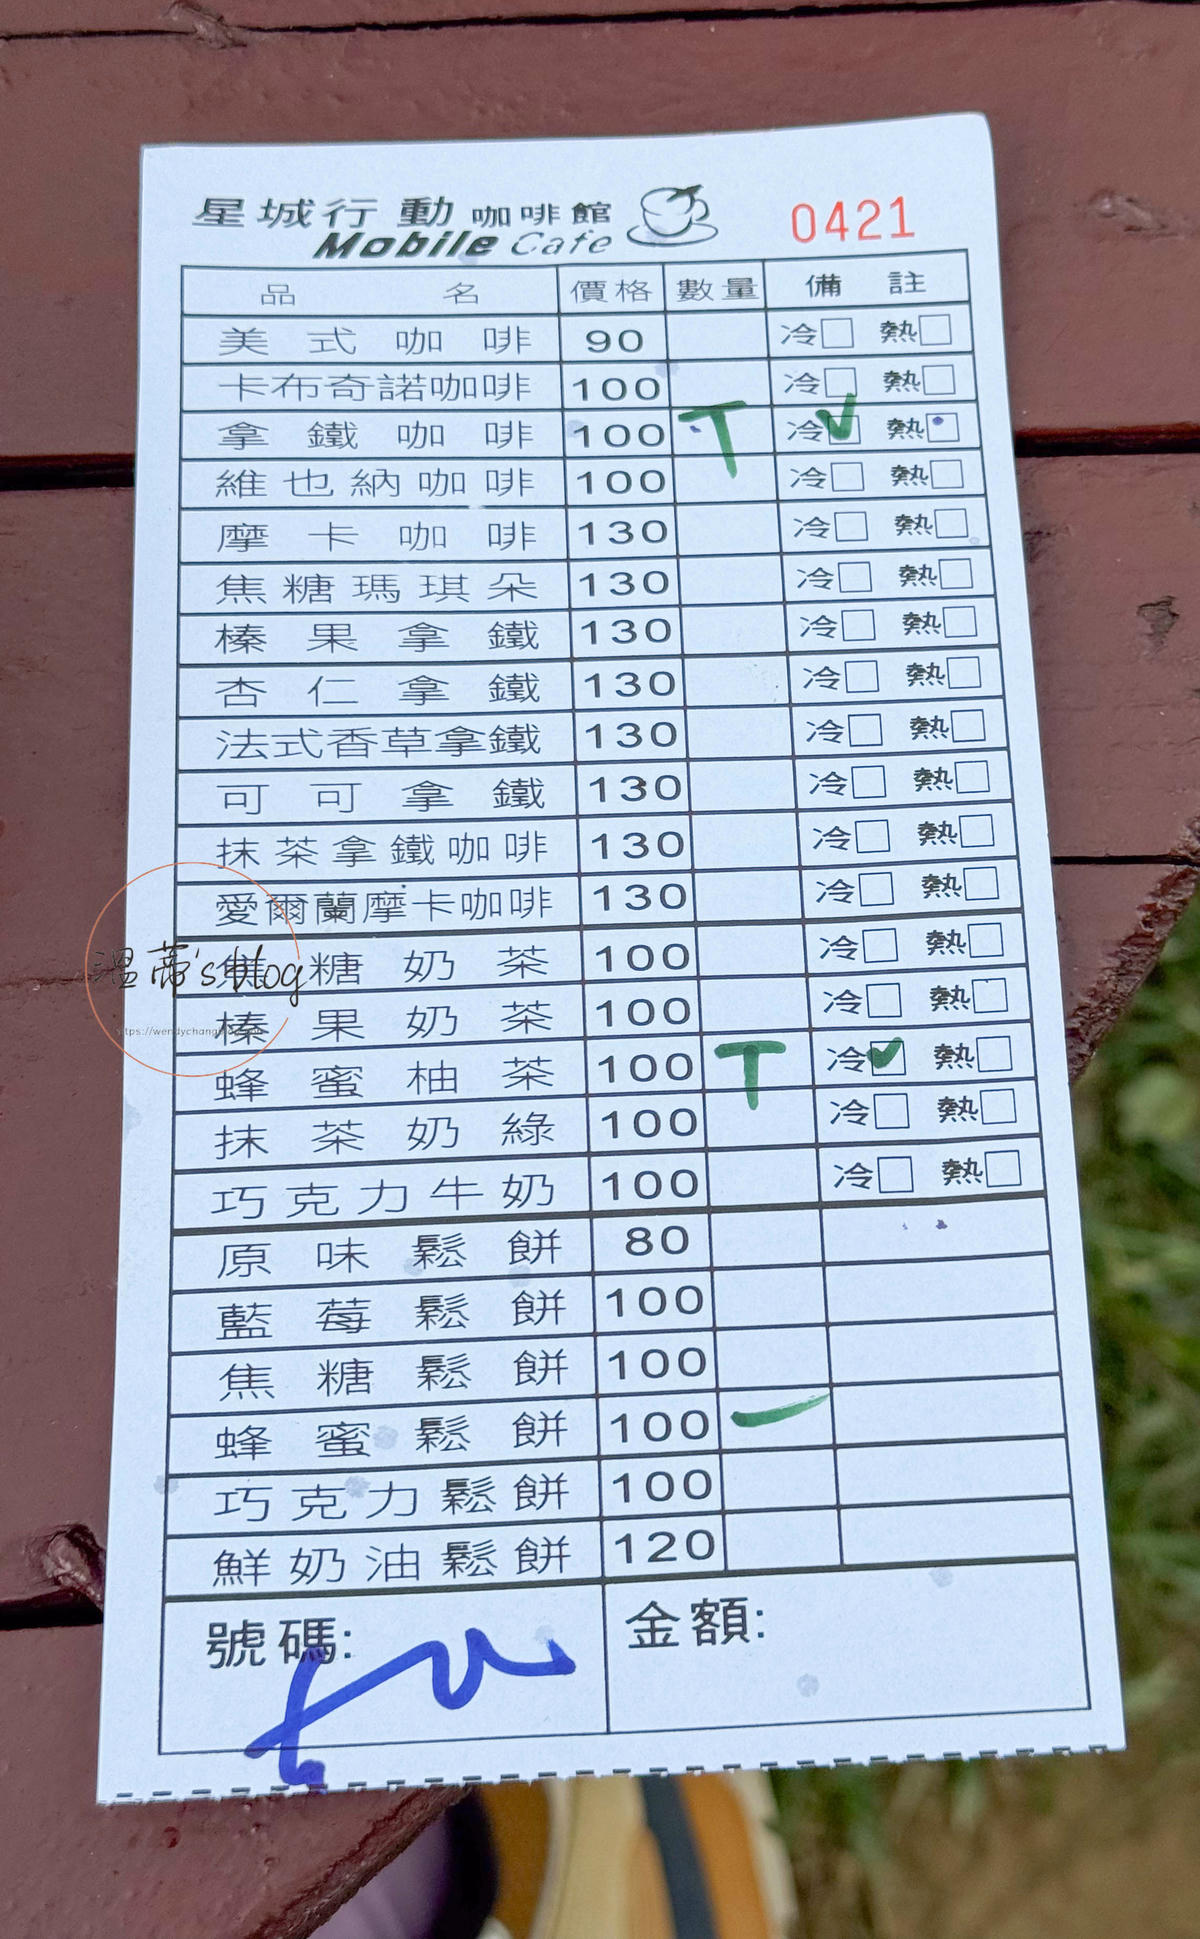 星城行動咖啡館
Mobile Cafe
0421
品名 價格 數量 備註
美式咖啡 90 冷□ 熱□
卡布奇諾咖啡 100 冷□ 熱□
拿鐵咖啡 100 T 冷☑ 熱□
維也納咖啡 100 冷□ 熱□
摩卡咖啡 130 冷□ 熱□
焦糖瑪琪朵 130 冷□ 熱□
榛果拿鐵 130 冷□ 熱□
杏仁拿鐵 130 冷□ 熱□
法式香草拿鐵 130 冷□ 熱□
可可拿鐵 130 冷□ 熱□
抹茶拿鐵咖啡 130 冷□ 熱□
愛爾蘭摩卡咖啡 130 冷□ 熱□
焦糖奶茶 100 冷□ 熱□
溫蒂's blog
榛果奶茶 100 冷□ 熱□
蜂蜜柚茶 100 T 冷☑ 熱□
抹茶奶綠 100 冷□ 熱□
巧克力牛奶 100 冷□ 熱□
原味鬆餅 80
藍莓鬆餅 100
焦糖鬆餅 100
蜂蜜鬆餅 100 一
巧克力鬆餅 100
鮮奶油鬆餅 120
號碼: 金額: